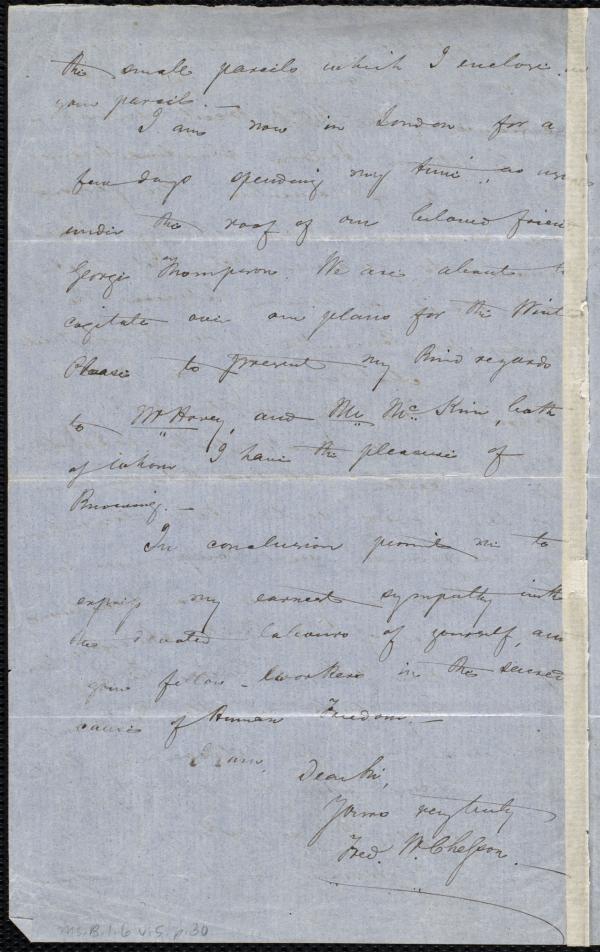 the small parcels which I enclose in
your parcels. —
I am now in London for a
few days spending my time, as
under the roof of our beloved frien
George Thompson. We are about t
cogitate over our plans for the Wint
Please to present my kind regards
to Mr Hovey, and Mr McKim, both
of whom I have the pleasure of
Knowing. —
In conclusion permit me to
express my earnest sympathy with
the devoted labours of yourself, an
your fellow-workers in the sacred
cause of Human Freedom. —
I am,
Dear Sir,
Yours very truly
Fred. W. Chesson.
Ms. B. 1. 6 v. 5, p. 30